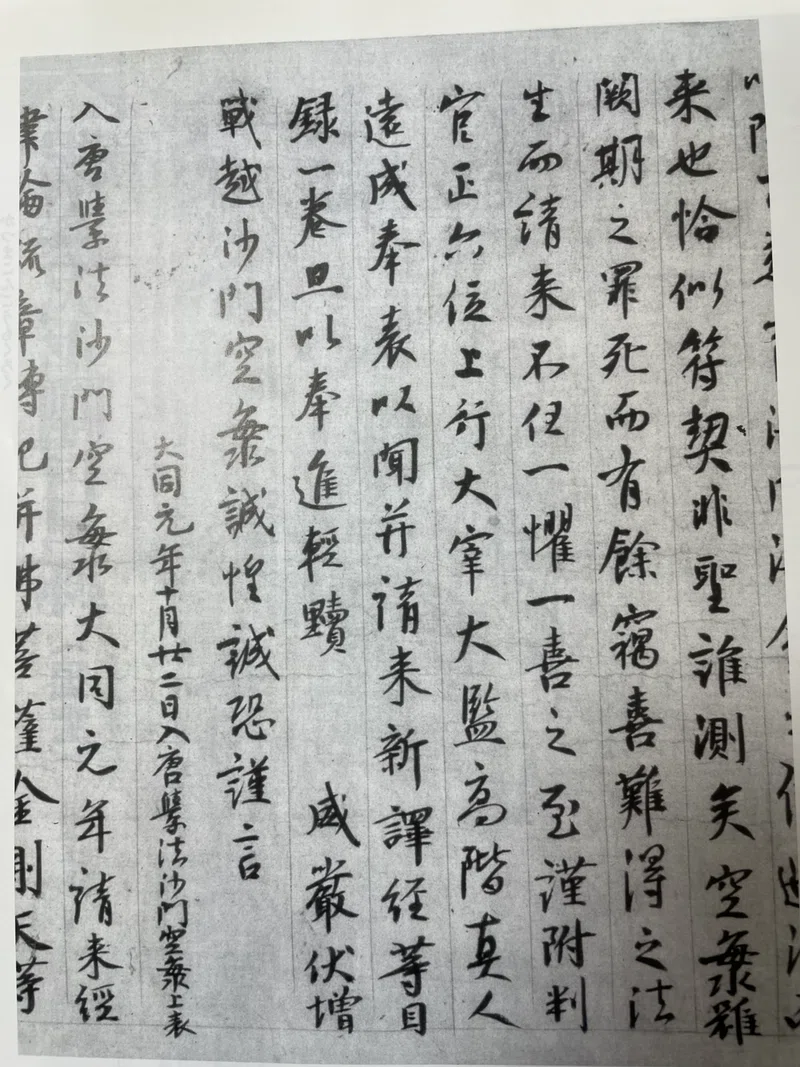 来也恰似符契非聖誰測矣空海雖
闕期之罪死而有餘竊喜難得之法
生而請来不任一懼一喜之至謹附判
官正六位上行大宰大監高階真人
遠成奉表以聞并請来新譯経等目
録一巻且以奉進輕黷　威嚴伏増
戰越沙門空海誠惶誠恐謹言
大同元年十月廿二日入唐學法沙門空海上表
入唐學法沙門空海大同元年請来経
律論疏章傳記并佛菩薩金剛天等